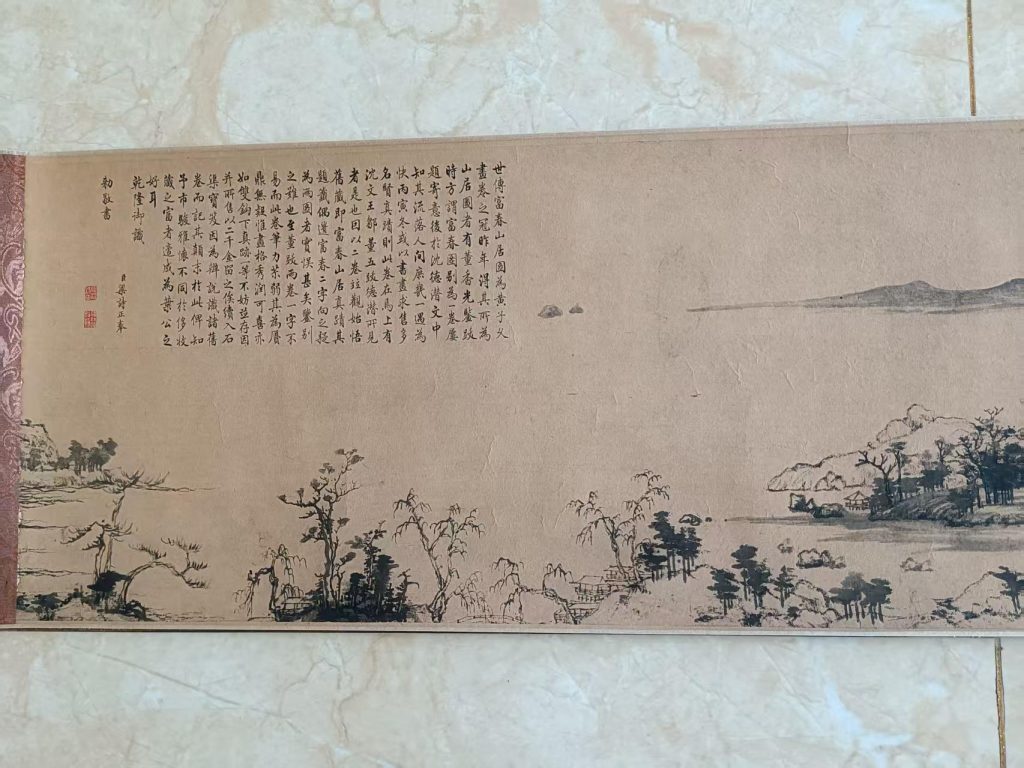 世傳富春山居圖為黃子久
畫卷之冠昨年得其所為
山居圖者有董香光鑒跋
時方謂富春圖別為一卷屢
題寄意後於沈德潛文中
知其流落人間庶幾一遇為
快丙寅冬或以書畫求售多
名賢真蹟則此卷在焉上有
沈文王鄒董五跋德潛所見
者是也因以二卷並觀始悟
舊藏即富春山居真蹟其
題籤偶遺富春二字向之疑
為兩圖者實悞甚矣鑒別
之難也至董跋兩卷一字不
易而此卷筆力苶弱其為贗
鼎無疑惟畫格秀潤可喜亦
如雙鈎下真跡一等不妨並存因
并所售以二千金留之俟續入石
渠寶笈因為辨說識諸舊
卷而記其顛末於此俾知
予市駿雅懷不同於侈收
藏之富者適成為葉公之
好耳
乾隆御識
臣梁詩正奉
勅敬書